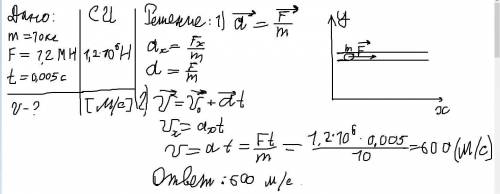 Дано:
m = 10кг
F = 1,2 МН
t = 0,005 с
v - ?
СИ
1,2·10⁶Н
[м/с]
Решение: 1) a⃗ = F⃗/m
aₓ = Fₓ/m
a = F/m
2) v⃗ = v⃗₀ + a⃗t
vₓ = aₓt
v = at = Ft/m = 1,2·10⁶ · 0,005/10 = 600 (м/с)
Ответ: 600 м/с.
y
m F⃗
x